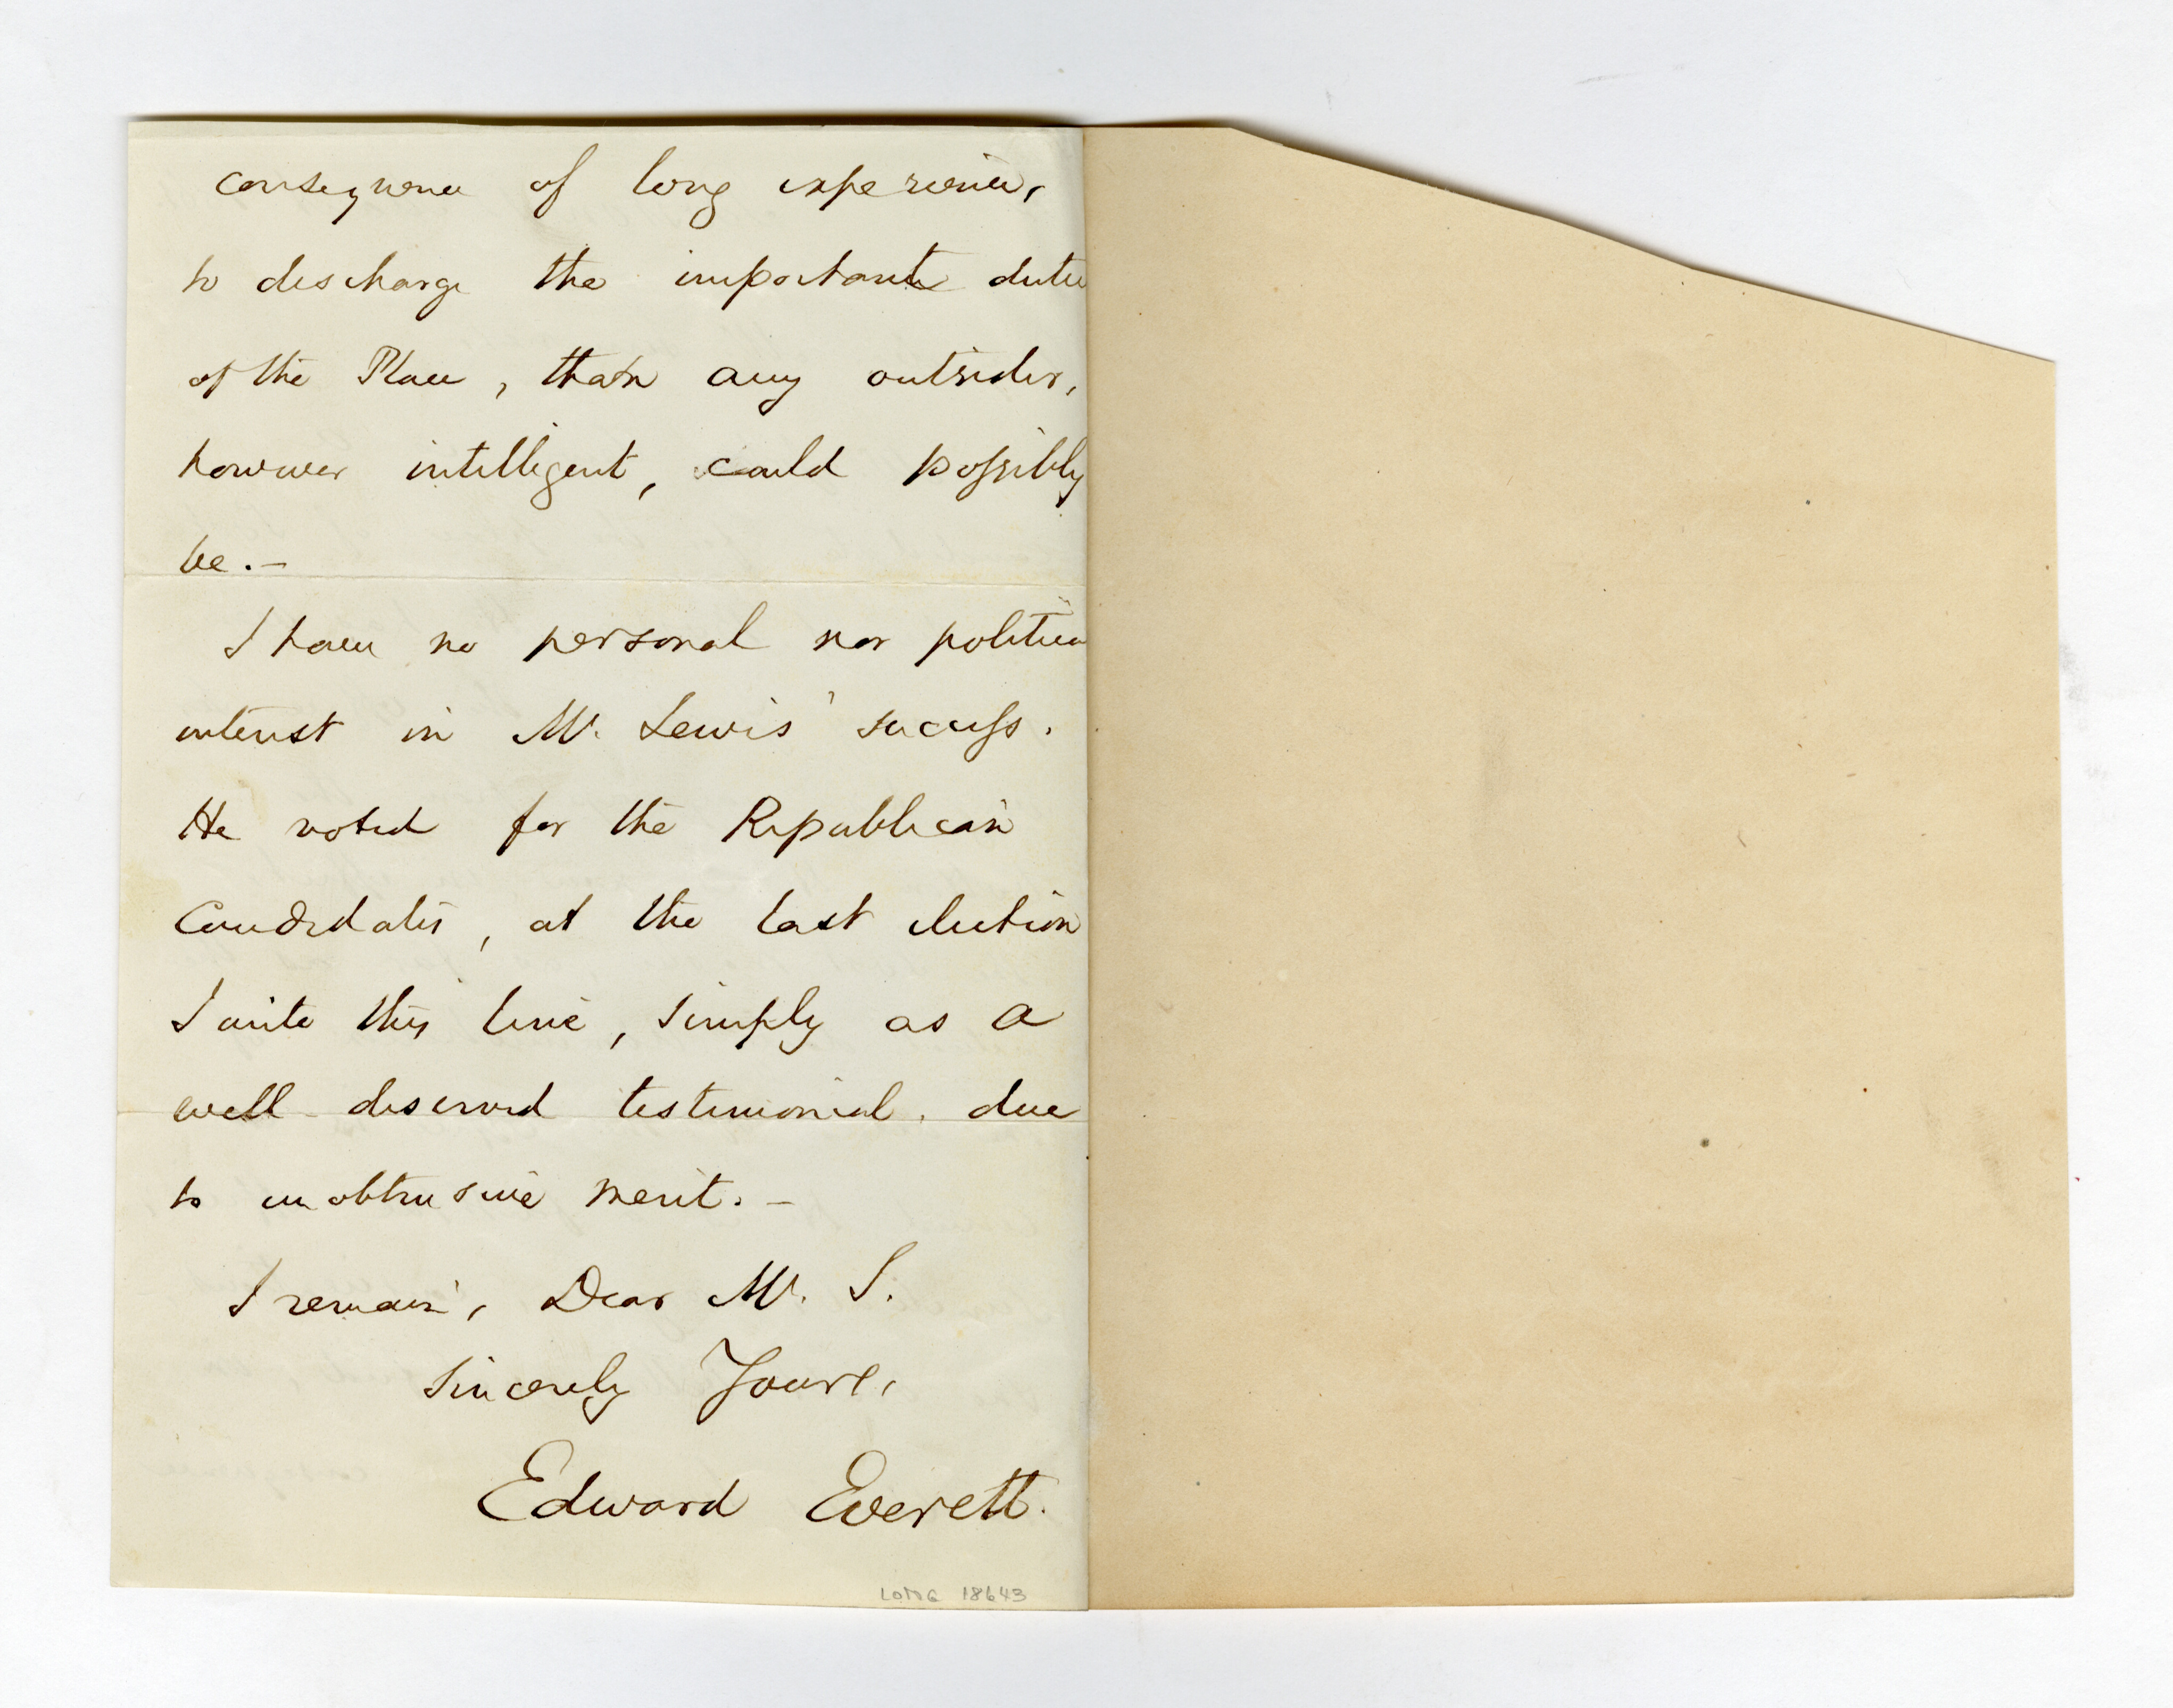 consequence of long experience,
to discharge the important dutie
of the Place, than any outsider,
however intelligent, could possibly
be.—
I have no personal nor politica
interest in Mr. Lewis' success.
He voted for the Republican
Candidates, at the last election
I write this line, simply as a
well-deserved testimonial, due
to unobtrusive merit.—
I remain, Dear Mr. S.
Sincerely Yours,
Edward Everett.
LONG 18643